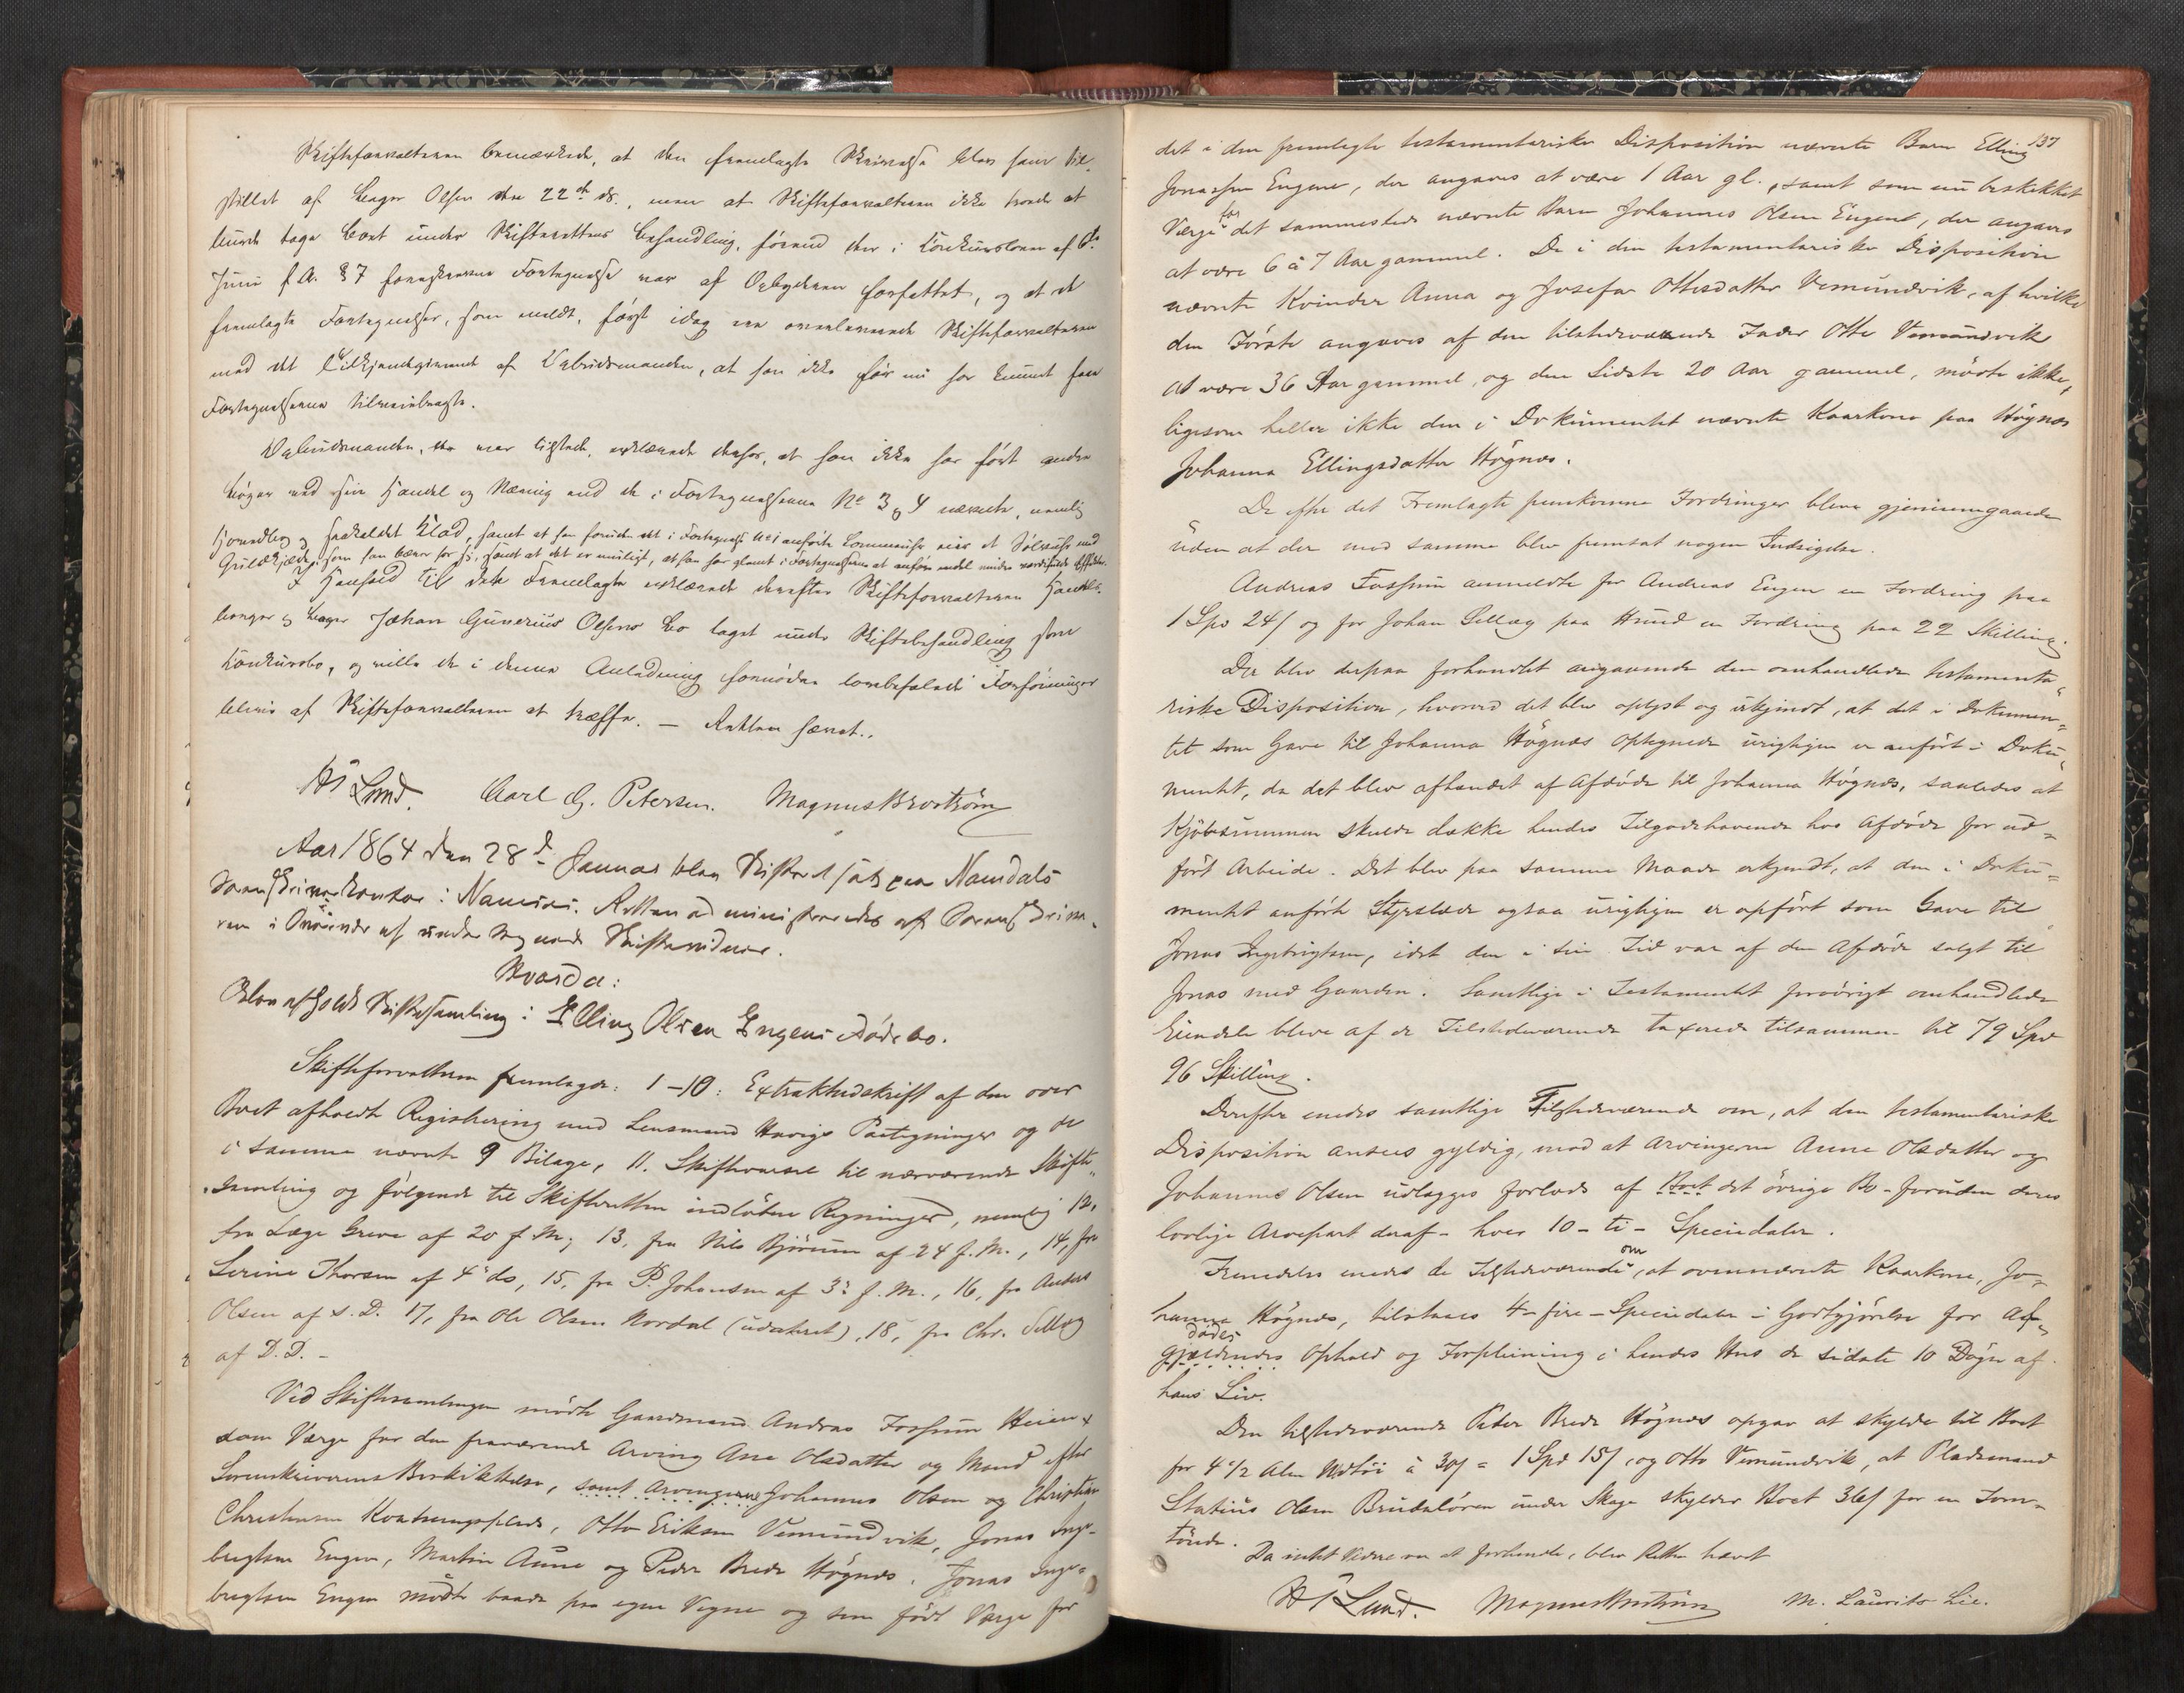 Skifteforvalteren bemærkede, at den fremlagte Skrivelse blev ham til-
stillet af Bager Olsen den 22de ds., men at Skifteforvalteren ikke troede at
kunde tage Boet under Skifterettens Behandling, førend den i Konkursloven af 6te
Juni f. A. § 7 foreskrevne Fortegnelse var af Opbyderen forfattet, og at de
fremlagte Fortegnelser, som meldt, først idag ere overleverede Skifteforvalteren
med det Tilkjendegivende af Opbudsmanden, at han ikke før nu har kunnet faa
Fortegnelserne tilveiebragte.
Opbudsmanden, der var tilstede, erklærede derhos, at han ikke har ført andre
Bøger ved sin Handel og Næring end de i Fortegnelserne No 3 og 4 nævnte, nemlig
Hovedbog og saakaldet Klad, samt at han foruden det i Fortegnelse No 1 anførte Lommeuhr eier et Sølvuhr med
Guldkjede, som han bærer paa sig, samt at det er muligt, at han har glemt i Fortegnelserne at anføre endel mindre værdifulde Effekter.
I Henhold til dette Fremlagte erklærede derefter Skifteforvalteren Handels-
borger og Bager Johan Gunerius Olsens Bo taget under Skiftebehandling som
Konkursbo, og ville de i denne Anledning fornødne lovbefalede Forføininger
blive af Skifteforvalteren at træffe. — Retten hævet.
H T Lund. Carl G. Petersen. Magnus Brostrøm
Aar 1864 den 28de Januar blev Skifteret sat paa Namdals
Sorenskriverkontor i Namsos. Retten administreredes af Sorenskrive-
ren i Overvær af undertegnede Skiftevidner.
Hvorda:
Blev afholdt Skiftesamling i Elling Olsen Engens Dødsbo.
Skifteforvalteren fremlagde: 1–10: Extraktudskrift af den over
Boet afholdte Registrering med Lensmand Havigs Paategninger og de
i samme nævnte 9 Bilage, 11. Skiftevarsel til nærværende Skifte-
samling og følgende til Skifteretten indløbne Regninger, nemlig 12,
fra Læge Greve af 20 f. M., 13, fra Nils Bjørum af 24 f. M., 14, fra
Serine Thorsen af 4de ds, 15, fra P. Johansen af 3de f. M., 16, fra Anders
Olsen af s. D. 17, fra Ole Olsen Nordal (udateret), 18, fra Chr. Sellæg
af D. D. –
Ved Skiftesamlingen mødte Gaardmand Andreas Fossum
som Værge for den fraværende Arving Ane Olsdatter og Mand efter
Sorenskriverens Beskikkelse, samt Arvingerne Johannes Olsen og Christian
Christensen Kvatningsplads, Otto Eriksen Vemundvik, Jonas Inge-
brigtsen Engen, Martin Aune og Peder Brede Høgnæs. Jonas Inge-
brigtsen Engen mødte baade paa egne Vegne og som født Værge for
137
det i den fremlagte testamentariske Disposition nævnte Barn Elling
Jonassen Engen, der angaves at være 1 Aar gl., samt som nu beskikket
Værge for det sammesteds nævnte Barn Johannes Olsen Engen, der angaves
at være 6 à 7 Aar gammel. De i den testamentariske Disposition
nævnte Kvinder Anna og Josefa Ottesdatter Vemundvik, af hvilke
den Første angaves af den tilstedeværende Fader Otto Vemundvik
at være 36 Aar gammel, og den Sidste 20 Aar gammel, mødte ikke,
ligesom heller ikke den i Dokumentet nævnte Kaarkone paa Høgnæs
Johanna Ellingsdatter Høgnæs.
De efter det Fremlagte fremkomne Fordringer bleve gjennemgaaede
uden at der mod samme blev fremsat nogen Indsigelse.
Andreas Fossum anmeldte for Andreas Engen en Fordring paa
1 Spd 24 ſ og for Johan Sellæg paa Hund en Fordring paa 22 Skilling.
Der blev derpaa forhandlet angaaende den omhandlede testamenta-
riske Disposition, hvorved det blev oplyst og erkjendt, at det i Dokumen-
tet som Gave til Johanna Høgnæs Optegnede urigtigen er anført i Doku-
mentet, da det blev afhændet af Afdøde til Johanna Høgnæs, saaledes at
Kjøbesummen skulde dække hendes Tilgodehavende hos Afdøde for ud-
ført Arbeide. Det blev paa samme Maade erkjendt, at den i Doku-
mentet anførte Styrslæde ogsaa urigtigen er opført som Gave til
Jonas Ingebrigtsen, idet den i sin Tid var af den Afdøde solgt til
Jonas med Gaarden. Samtlige i Testamentet forøvrigt omhandlede
Eiendele bleve af de Tilstedeværende taxerede tilsammen til 79 Spd
96 Skilling.
Derefter enedes samtlige Tilstedeværende om, at den testamentariske
Disposition ansees gyldig, mod at Arvingerne Anne Olsdatter og
Johannes Olsen udlægges forlods af Boet det øvrige Bo – foruden deres
lovlige Arvepart deraf – hver 10 – ti – Speciedaler.
Fremdeles enedes de Tilstedeværende om, at ovennævnte Kaarkone, Jo-
hanna Høgnæs, tilstaaes 4 – fire – Speciedaler i Godtgjørelse for Af-
dødes
gjældendes Ophold og Forpleining i hendes Hus de sidste 10 Døgn af
hans Liv.
Den tilstedeværende Peder Brede Høgnæs opgav at skylde til Boet
for 4 1/2 Alen Vadmel à 30 ſ = 1 Spd 15 ſ, og Otto Vemundvik, at Pladsmand
Statius Olsen Brudaløren under Skage skylder Boet 36 ſ for en Korn-
tønde.
Da intet Videre var at forhandle, blev Retten hævet
H T Lund. Magnus Brostrøm M. Laurits Lie.